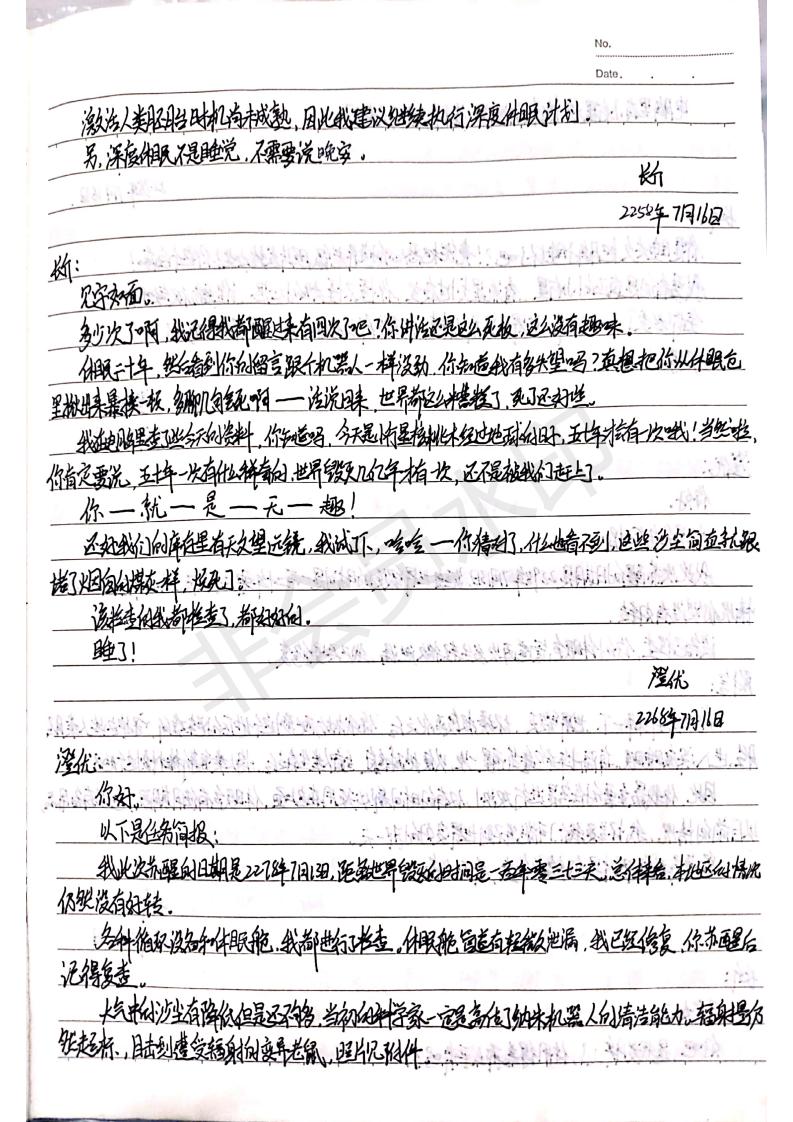 No.
Date. . .
激活人类胚胎时机尚未成熟，因此我建议继续执行深度休眠计划。
另，深度休眠不是睡觉，不需要说晚安。
长介
2258年7月16日
长介：
见字如面。
多少次了啊，我记得我都醒过来有四次了吧？你讲话还是这么死板，这么没有趣味。
休眠二十年，然后看到你的留言跟个机器人一样没劲，你知道我有多失望吗？真想把你从休眠仓
里揪出来暴揍一顿，多聊几句会死啊——话说回来，世界都这么糟糕了，死了还好些。
我在电脑里查了些今天的资料，你知道吗，今天是小行星核桃木经过地球的日子，五十年才有一次哦！当然啦，
你肯定要说，五十年一次有什么稀奇的，世界毁灭几亿年才有一次，还不是被我们赶上了。
你—就—是—无—趣！
还好我们的库存里有天文望远镜，我试了下，哈哈——你猜对了，什么也看不到，这些沙尘简直就跟
堵了烟囱的煤灰一样，烦死了。
该检查的我都检查了，都好好的。
睡了！
澄优
2268年7月16日
澄优：
你好。
以下是任务简报：
我此次苏醒的日期是2278年7月16日，距离世界毁灭的时间是一百年零三十三天，总体来看，本地区的情况
仍然没有好转。
各种循环设备和休眠舱，我都进行了检查。休眠舱管道有轻微泄漏，我已经修复，你苏醒后
记得复查。
大气中的沙尘有降低但是还不够，当初的科学家一定是高估了纳米机器人的清洁能力。辐射量仍
然超标，目击到遭受辐射的变异老鼠，照片见附件。
非会员水印